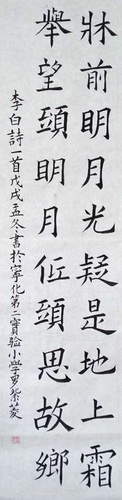 牀前明月光疑是地上霜
舉望頭明月低頭思故鄉
李白詩一首戊戌孟冬書於寧化第二實驗小學罗紫菱